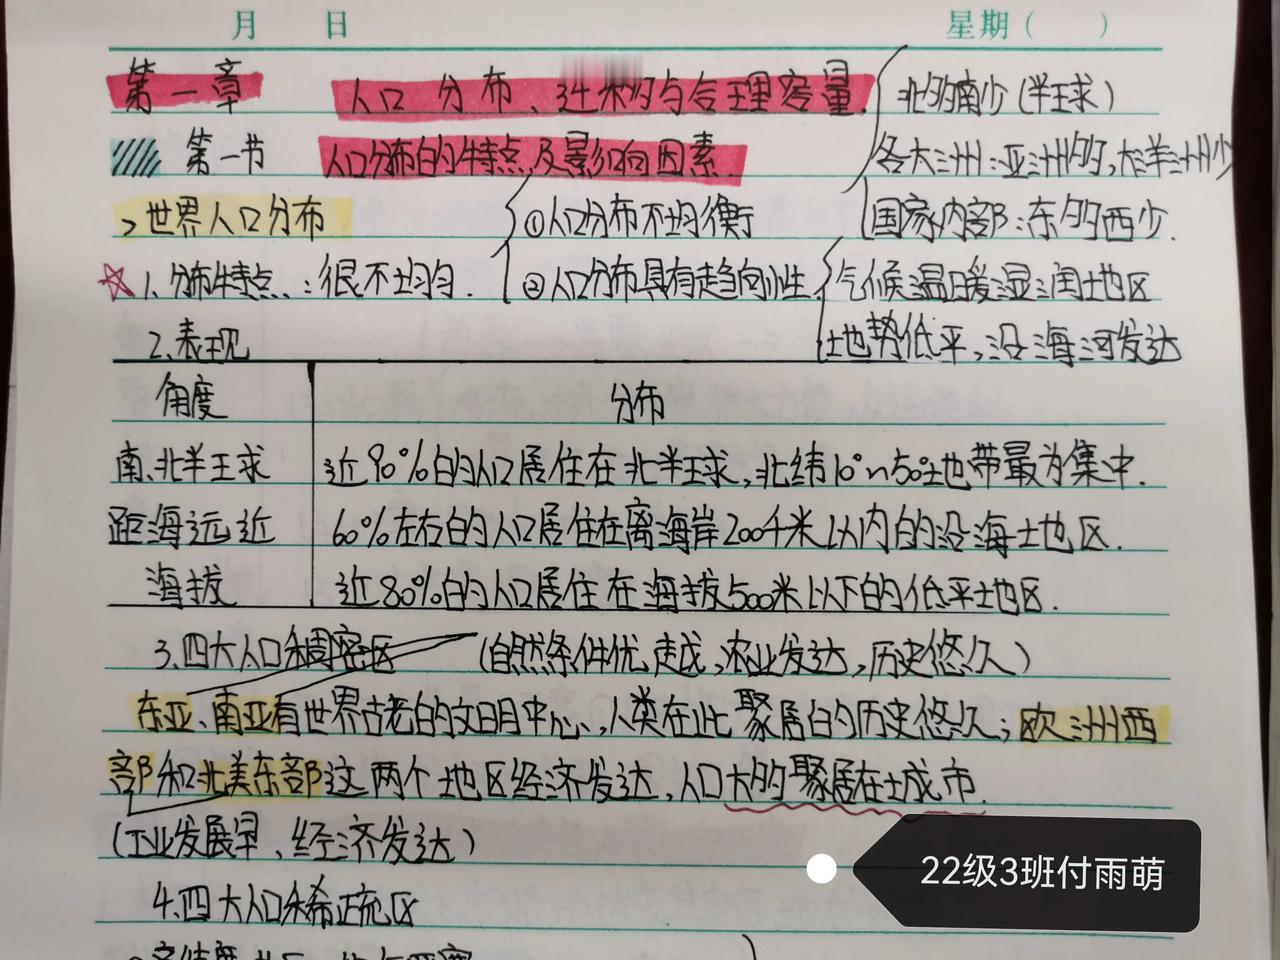 月 日 星期（ ）
第一章 人口分布、迁移与合理容量
北多南少（半球）
第一节 人口分布的特点及影响因素
各大洲：亚洲多，大洋洲少
>世界人口分布
①人口分布不均衡
国家内部：东多西少.
☆1、分布特点：很不均匀.
②人口分布具有趋向性
气候温暖湿润地区
2、表现
地势低平，沿海河发达
角度 分布
南、北半球 近90%的人口居住在北半球，北纬10°~50°地带最为集中.
距海远近 60%左右的人口居住在离海岸200千米以内的沿海地区.
海拔 近80%的人口居住在海拔500米以下的低平地区.
3、四大人口稠密区 （自然条件优越，农业发达，历史悠久）
东亚、南亚有世界古老的文明中心、人类在此聚居的历史悠久；欧洲西
部和北美东部这两个地区经济发达，人口大多聚居在城市.
（工业发展早、经济发达）
22级3班付雨萌
4、四大人口稀疏区